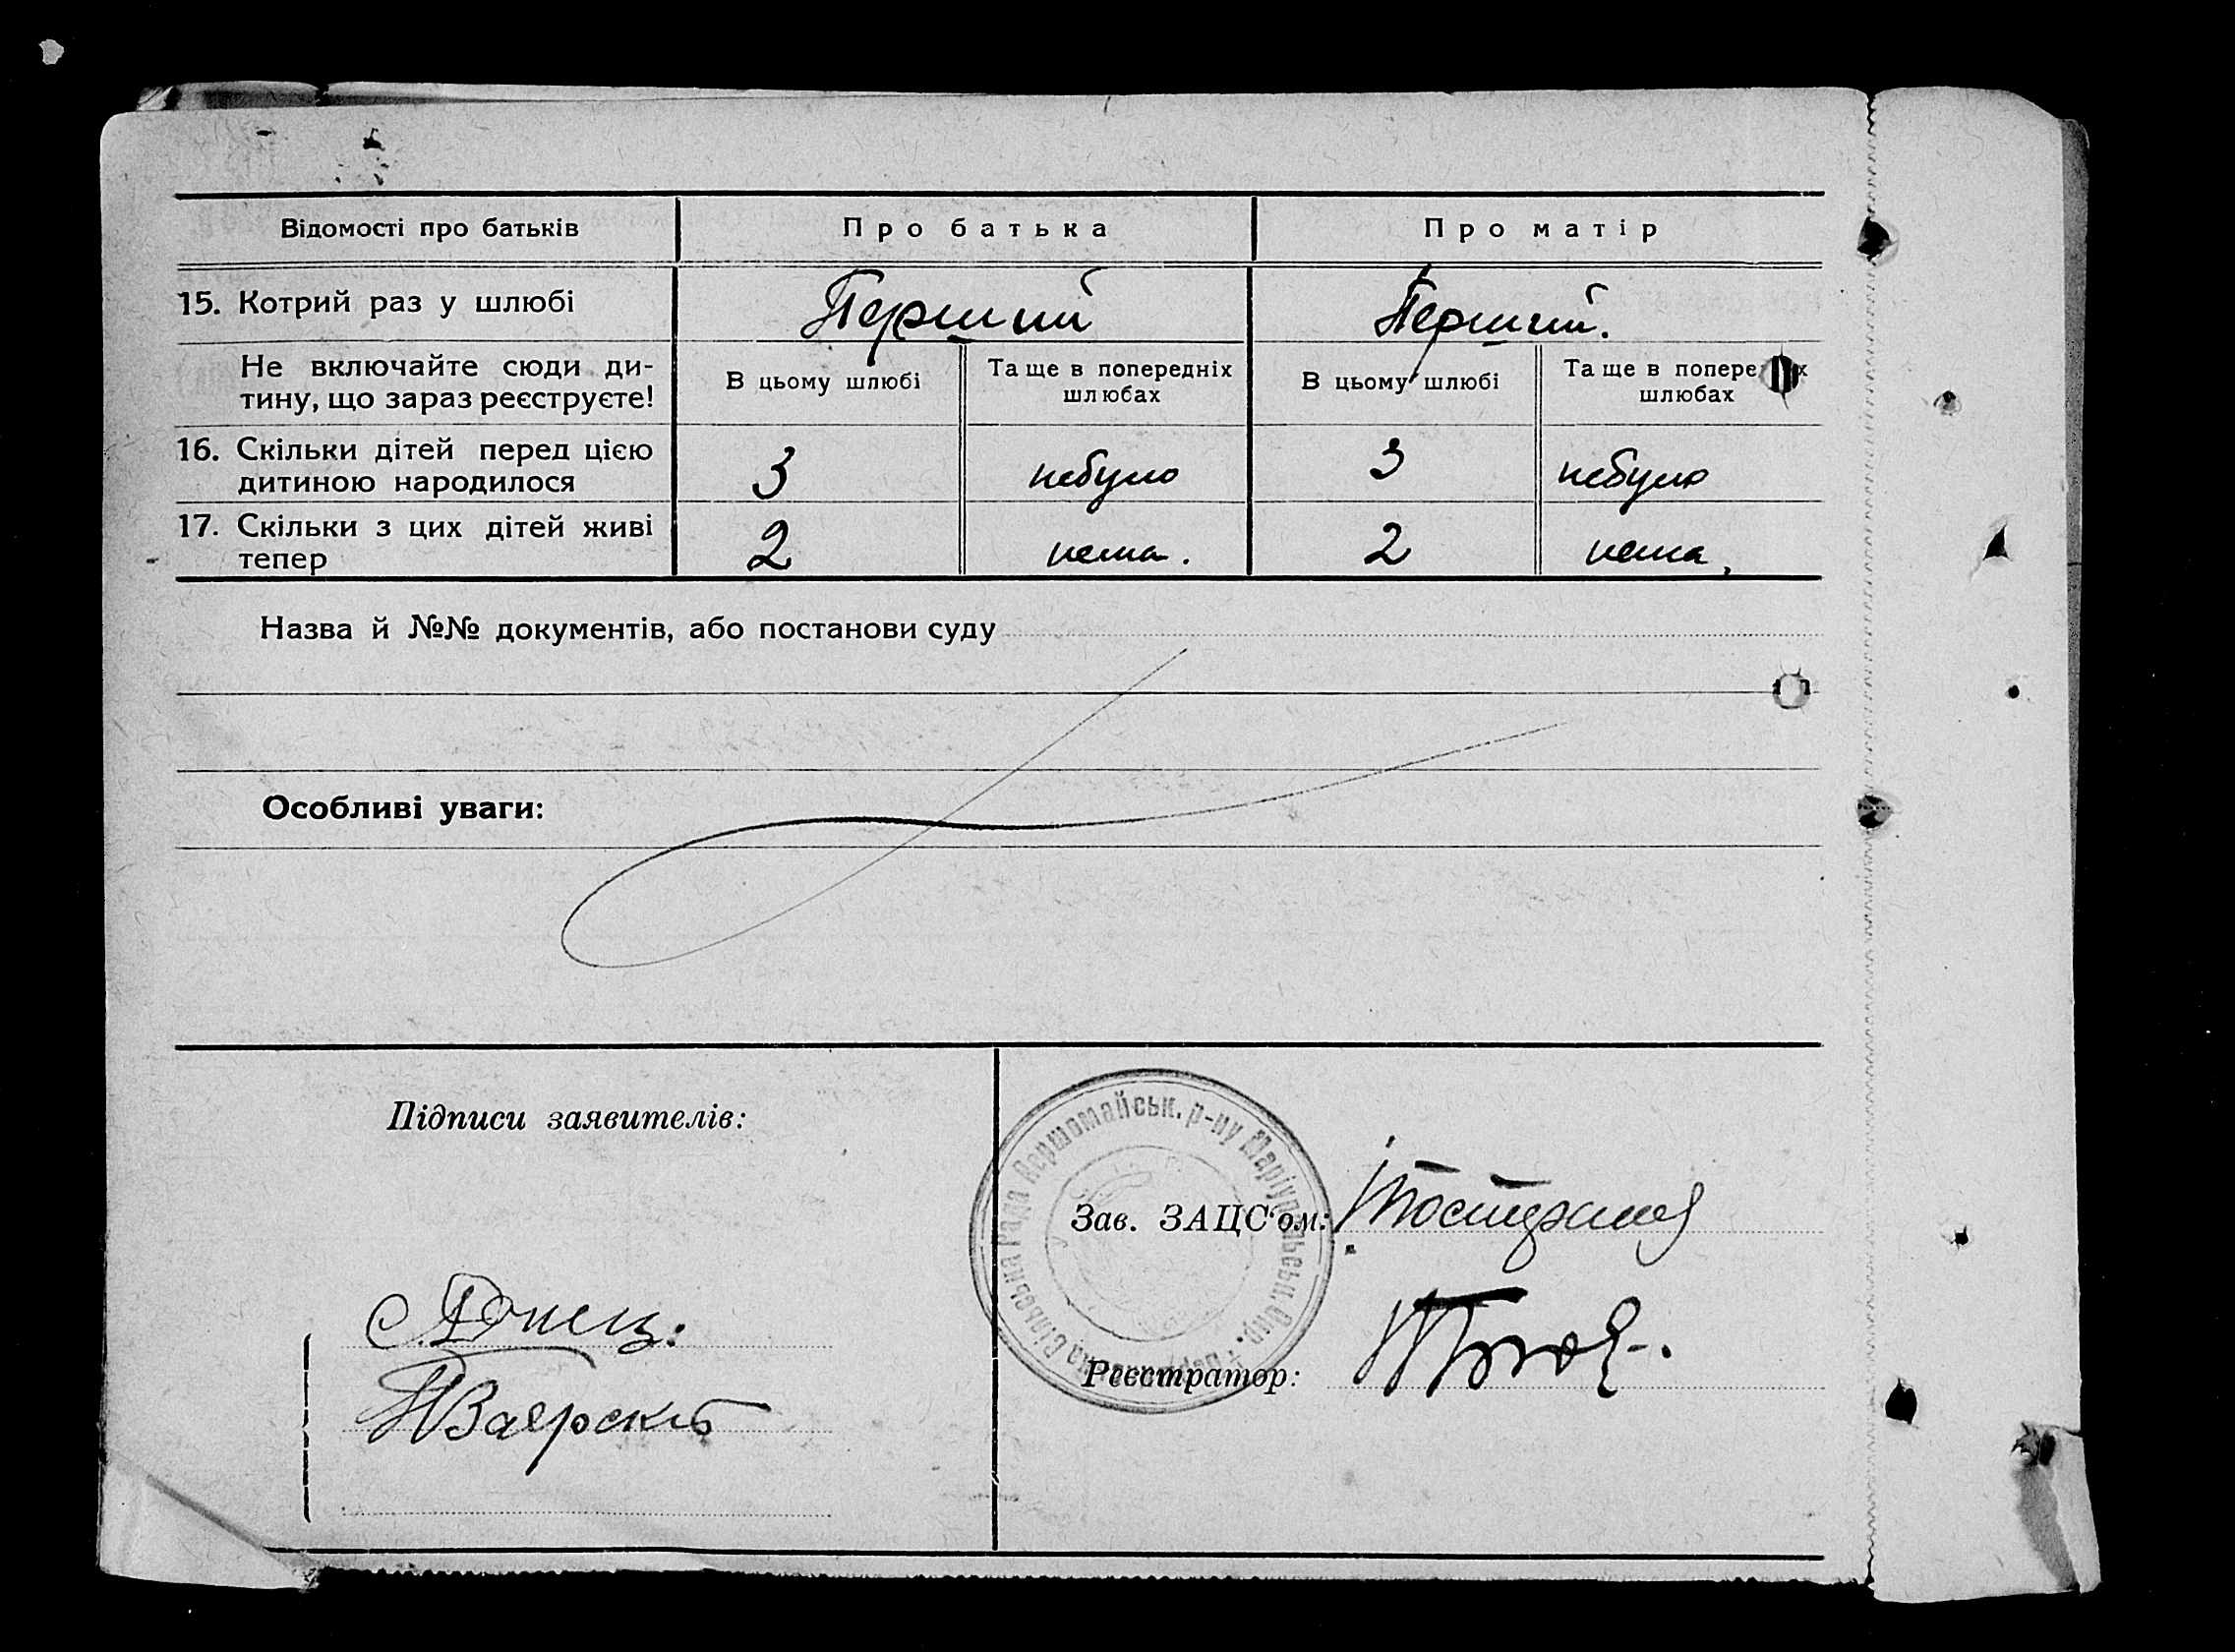 Відомості про батьків Про батька Про матір
15. Котрий раз у шлюбі Перший Перший.
Не включайте сюди ди-
тину, що зараз реєструєте!
В цьому шлюбі Та ще в попередніх шлюбах В цьому шлюбі Та ще в попере х шлюбах
16. Скільки дітей перед цією
дитиною народилося 3 небуло 3 небуло
17. Скільки з цих дітей живі
тепер 2 нема. 2 нема.
Назва й №№ документів, або постанови суду
Особливі уваги:
Підписи заявителів:
Зав. ЗАЦС'ом:
Реєстратор:
Сільська Рада Першомайськ. р-ну Маріупільськ. Окр.